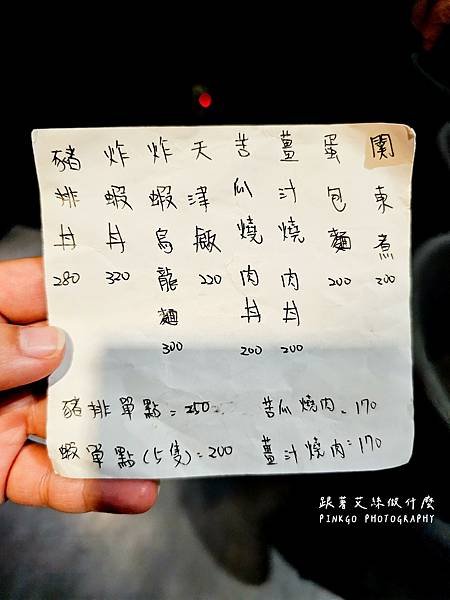 関東煮 200
蛋包麵 200
薑汁燒肉丼 200
苦瓜燒肉丼 200
天津飯 220
炸蝦烏龍麵 300
炸蝦丼 320
豬排丼 280
豬排單點=250
苦瓜燒肉=170
蝦單點(5隻)=200
薑汁燒肉=170
跟著艾絲做什麼
PINKGO PHOTOGRAPHY